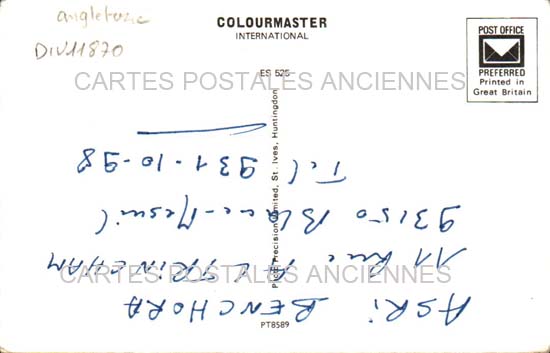 angleterre
DIV11870
COLOURMASTER
INTERNATIONAL
POST OFFICE
PREFERRED
Printed in
Great Britain
ES 525
CARTES POSTALES ANCIENNES
Precision Limited, St. Ives, Huntingdon
CARTES POSTALES ANCIENNES
PT8589
ASRi BENCHORA
11 Rue ALTRINCHAM
93150 Blanc-Mesnil
Tel 931-10-98